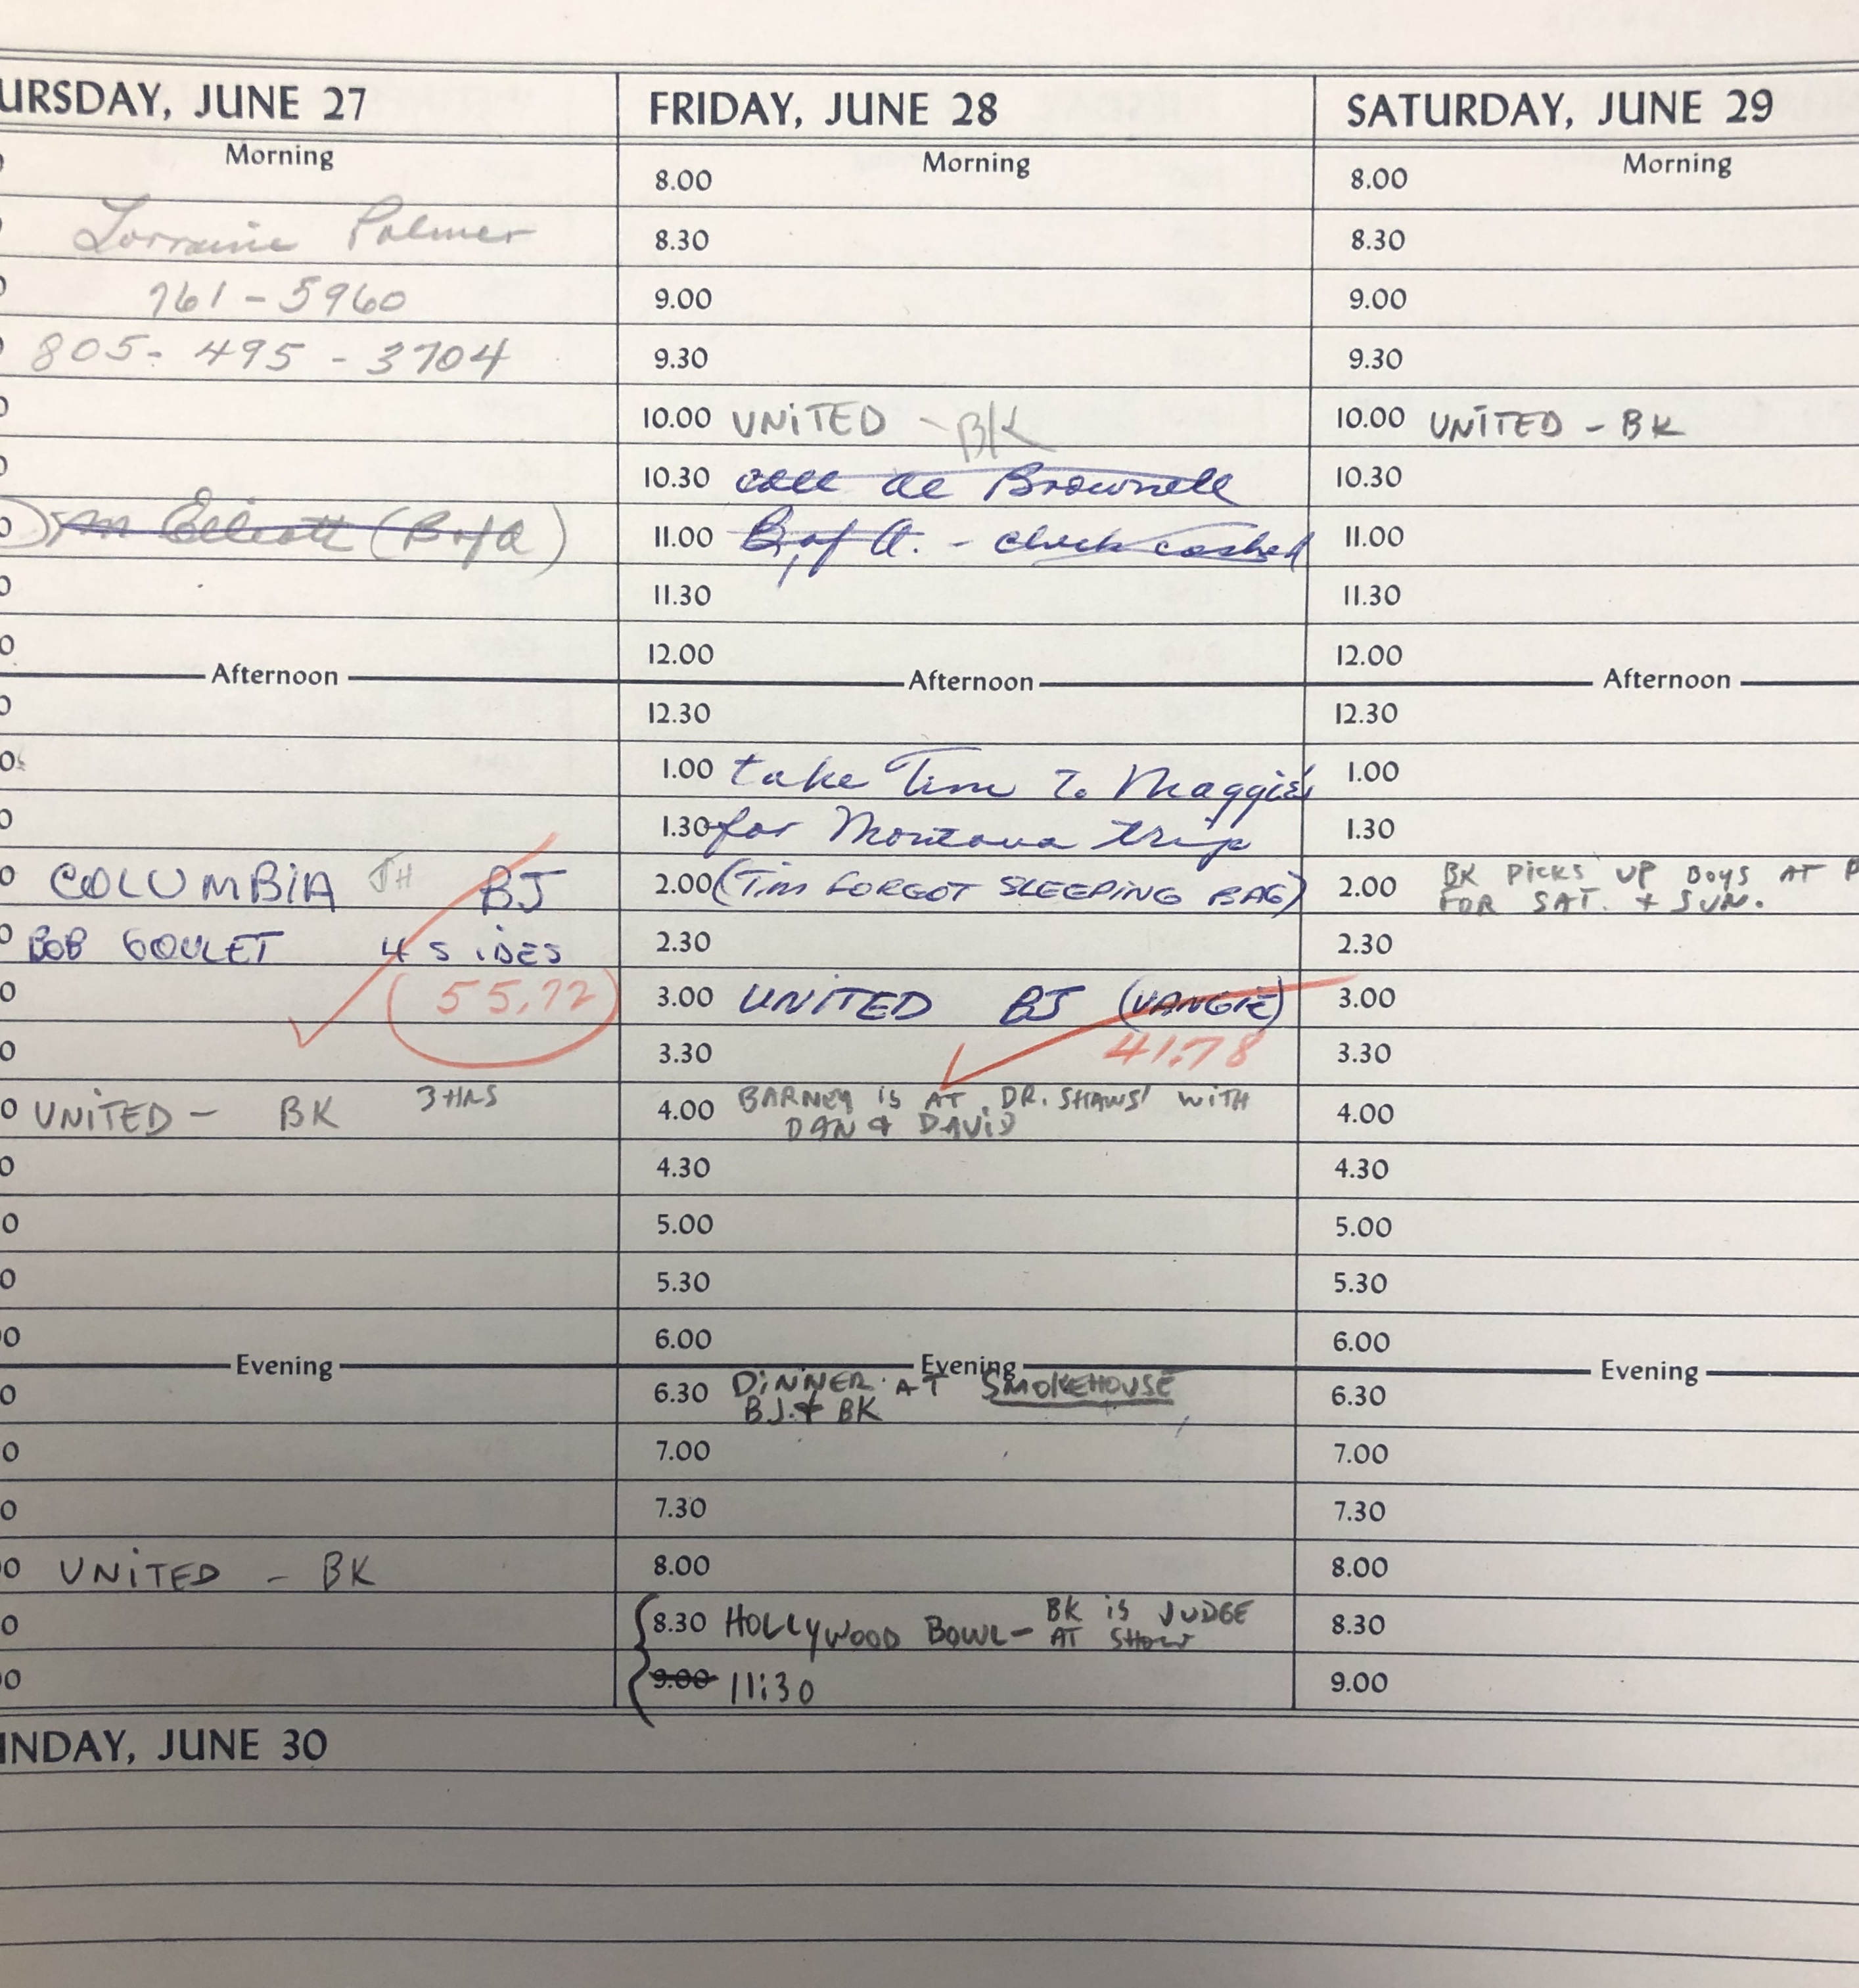 URSDAY, JUNE 27
Morning
Lorraine Palmer
761-5960
805-495-3704
Elliott (B of A)
Afternoon
COLUMBIA JH BJ
BOB GOULET 4 SIDES
(55.72)
UNITED - BK 3 HRS
Evening
UNITED - BK
FRIDAY, JUNE 28
Morning
8.00
8.30
9.00
9.30
10.00 UNITED - BK
10.30 call Al Brownell
11.00 B of A. - check cashed
11.30
12.00
Afternoon
12.30
1.00 take Tim To Maggie's
1.30 for Montana trip
2.00 (TIM FORGOT SLEEPING BAG)
2.30
3.00 UNITED BJ (VANGIE)
3.30 41.78
4.00 BARNEY IS AT DR. SHAWS' WITH
DAN & DAVID
4.30
5.00
5.30
6.00
Evening
6.30 DINNER AT SMOKEHOUSE
BJ. & BK
7.00
7.30
8.00
8.30 HOLLYWOOD BOWL - BK IS JUDGE
AT SHOW
9.00 11:30
SATURDAY, JUNE 29
Morning
8.00
8.30
9.00
9.30
10.00 UNITED - BK
10.30
11.00
11.30
12.00
Afternoon
12.30
1.00
1.30
2.00 BK PICKS UP BOYS AT
FOR SAT. + SUN.
2.30
3.00
3.30
4.00
4.30
5.00
5.30
6.00
Evening
6.30
7.00
7.30
8.00
8.30
9.00
NDAY, JUNE 30